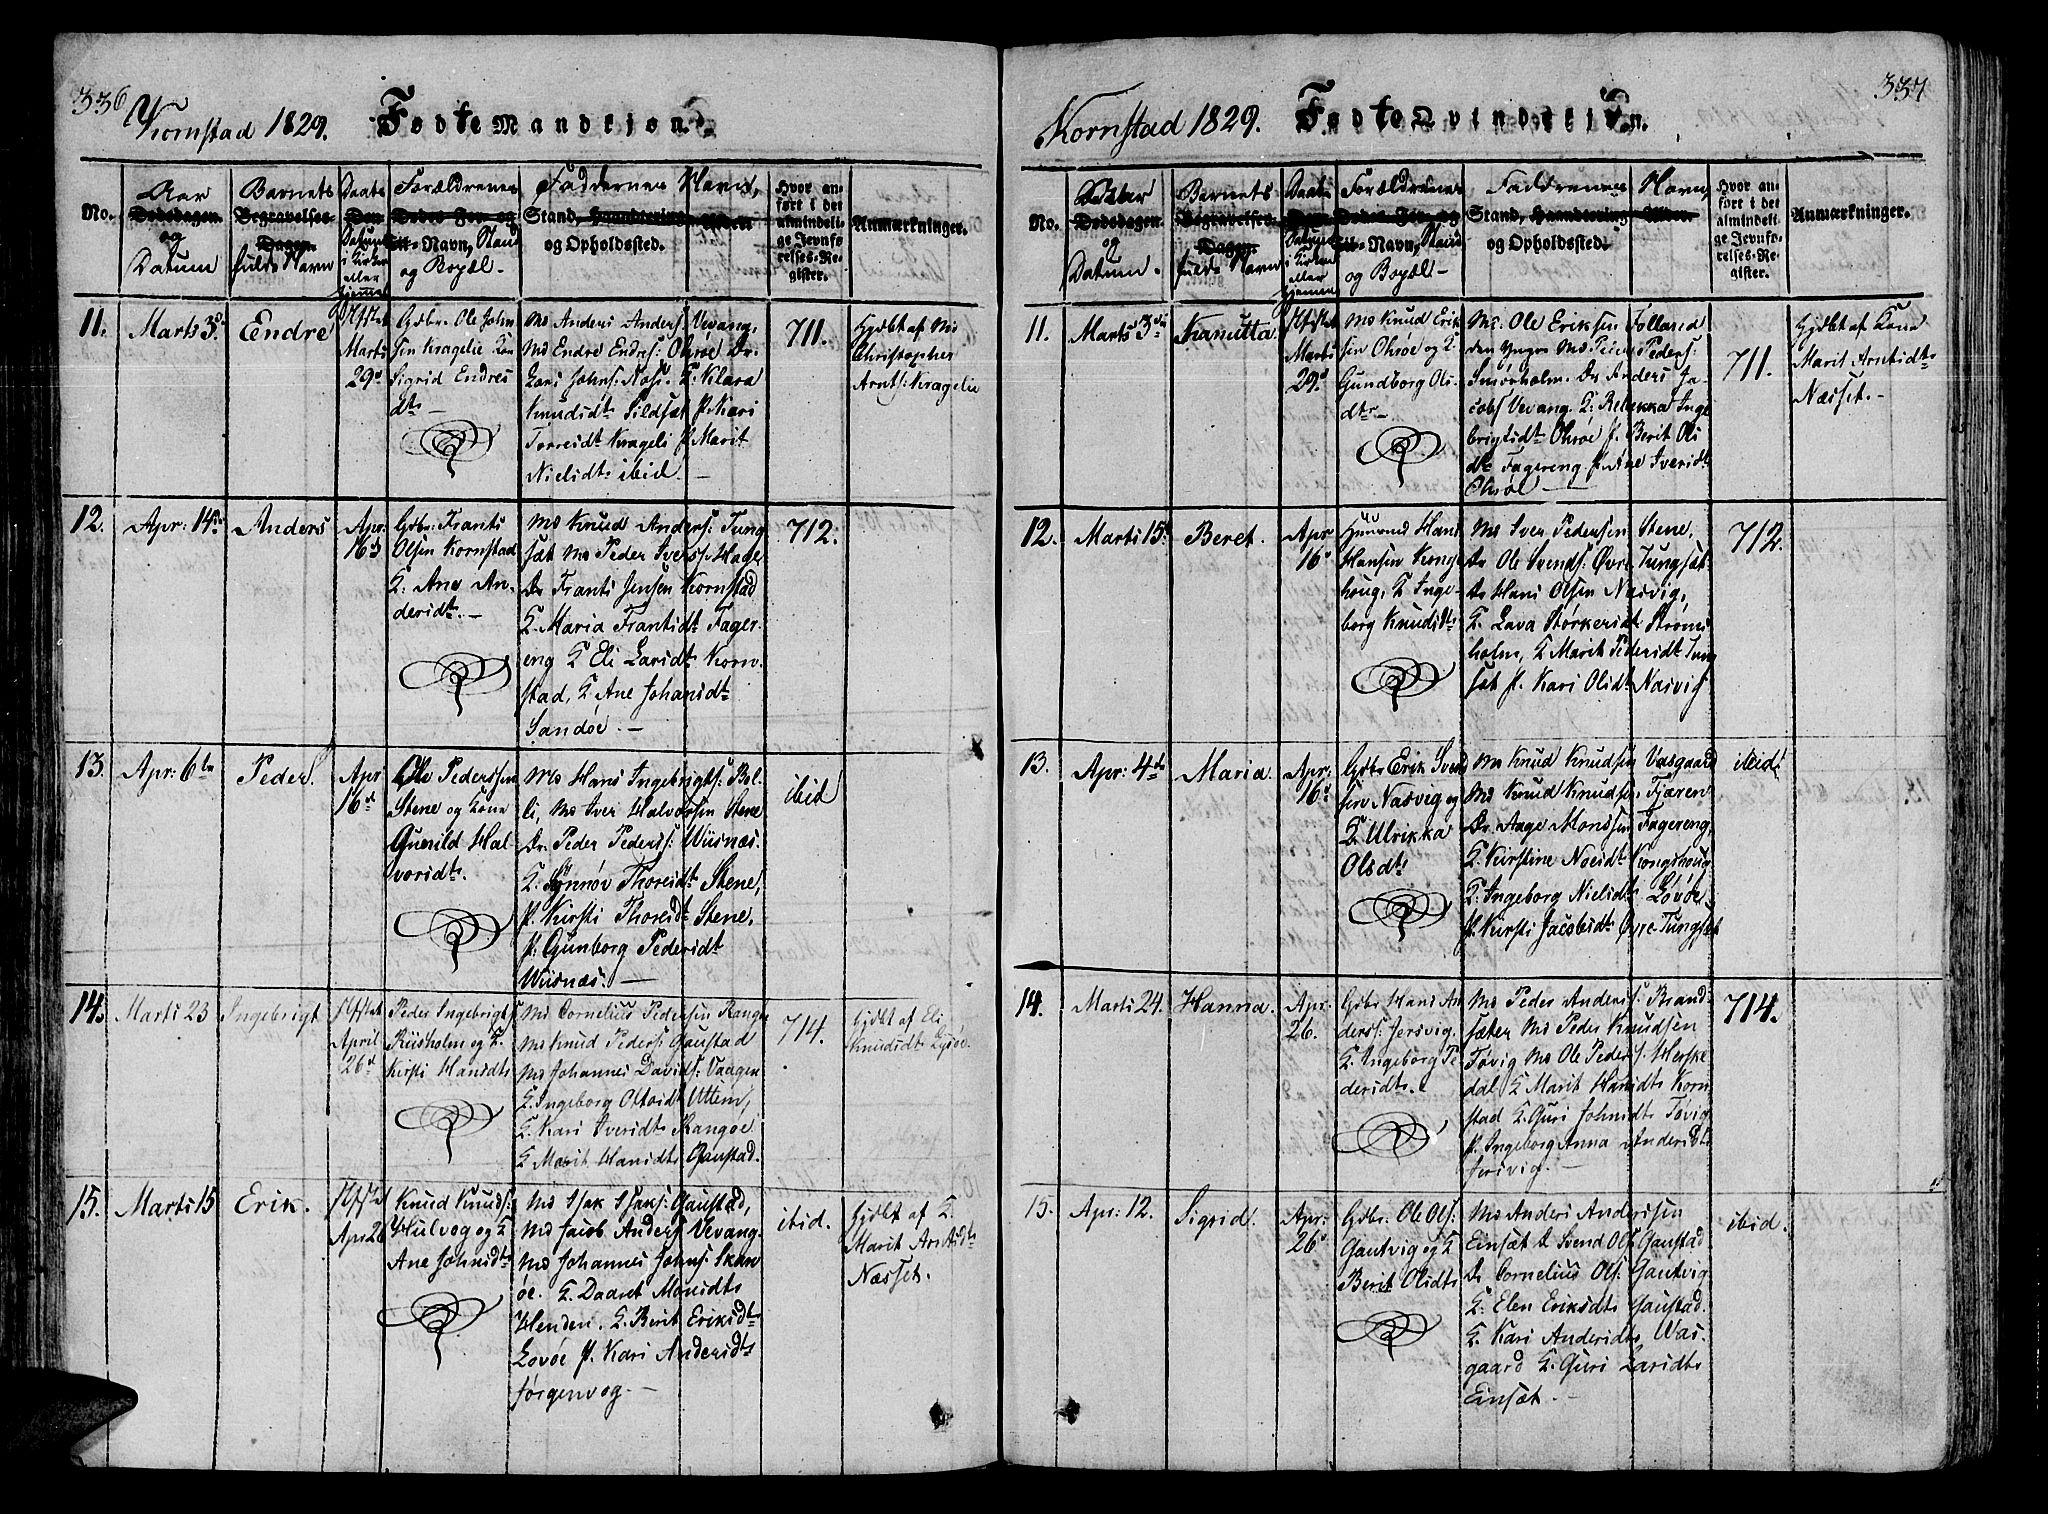 336
Kornstad 1829. Fødte Mandkjøn.
No.
Aar
Dødsdagen
og
Datum
Barnets
Begravelses-
Dagen
fulde Navn
Daabs
Datum
i Kirken
eller
hjemme
Forældrenes
Navn, Stand
og Bopæl.
Faddernes Navn,
Stand, Haandtering
og Opholdssted.
Alder
Hvor an-
ført i det
almindeli-
ge Jevnfø-
relses-Re-
gister.
Anmærkninger.
11.
Marts 3d
Endre
Marts
29d
Gdbr. Ole John
sen Kragelie Kon
Sigrid Endres
dt. —
Mo Anders Anders: Vevang,
Mo Endre Endres: Ohrøe Dr.
Lars Johns: Nose. K. Klara
Knudsdt Sildsæt P. Kari
Torresdt Krageli P. Marit
Nielsdt ibid. —
711.
Hjdbt af Mo
Christopher
Arnts: Kragelie
12.
Apr: 14de
Anders
Apr.
16d
Gdbr. Frants
Olsen Kornstad
K. Ane An-
dersdt. —
Mo Knud Anders: Tung
sæt Mo Peder Ivers: Hage
Dr Frants Jensen Kornstad
K. Maria Frantsdt Fager-
eng K Eli Larsdt Korn-
stad, K Ane Johansdt
Sandøe. —
712.
13.
Apr: 6te
Peder.
Apr
16d
Ole Pedersen
Stene og Kone
Gunild Hal-
vorsdt.
Mo Hans Ingebrigts: Bol-
li, Mo Iver Halvorsen Stene
Dr. Peder Peders: Wiisnæs.
K: Synnøv Thoresdt Stene,
P. Kirsti Thoresdt Stene,
P. Gunborg Pedersdt
Wiisnæs. —
ibid
14.
Marts 23
Ingebrigt
April
26d
Peder Ingebrigts
Riisholm og K.
Kirsti Hansdt
Mo Cornelius Pedersen Rangøe
Mo Knud Peders: Gaustad
Mo Johannes Davids: Vaagen
K. Ingeborg Olsdt Uttem,
K. Kari Iversdt Rangøe
K Marit Hansdt Gaustad.
714.
Hjdbt af Eli
Knudsdt Lysøe.
15.
Marts 15
Erik.
Apr 26
Knud Knuds:
Hulvog og K
Ane Johnsdt
Mo Isak Isaks: Gaustad,
Mo Jacob Anders Vevang
Mo Johannes Johns: Skan
øe. K. Daaret Monsdt
Henden. K. Berit Eriksdt
Lovøe P. Kari Andersdt
Jørgenvog —
ibid.
Hjdbt af K.
Marit Arntsdt
Næsset.
337
Kornstad 1829. Fødte Qvindekjøn.
No.
Dødsdagen
og
Datum.
Barnets
Begravelses-
Dagen
fulde Navn
Daabs
Datum
i Kirken
eller
hjemme
Forældrenes
Navn, Stand
og Bopæl —
Faddrenes Navn,
Stand, Haandtering
og Opholdssted.
Alder
Hvor an-
ført i det
almindeli-
ge Jevnfø-
relses-Re-
gister.
Anmærkninger.
11.
Marts 3die
Kanutta
Marts
29d
Mo Knud Erik
sen Ohrøe og K
Gundborg Ols-
dtr —
Mo. Ole Eriksen Folland
den Yngre Mo Peder Peders:
Smørholm. Dr Anders Ja-
cobs Vevang. K: Rebekka Inge
brigtsdt Ohrøe P. Berit Ols
dt Fagereng P. Ane Iversdt
Ohrøe —
711.
Hjdbt af Kone
Marit Arntsdt
Næsset. —
12.
Marts 15.
Beret.
Apr
16d
Huusmd Hans
Hansen Kongs
houg, K Inge-
borg Knudsdt
Mo Iver Pedersen Stene,
Dr Ole Svends: Øvre Tungsæt
Dr Hans Olsen Nasvig,
K. Lava Størkersdt Strøms
holm, K Marit Pedersdt Tung
sæt P. Kari Olsdt Nasvig
712.
13.
Apr: 4de
Maria.
Apr.
16d
Gdbr Erik Svend
sen Nasvig og
K. Ulrikka
Olsdt
Mo Knud Knudsen Vasgaard
Mo Knud Knudsen Fjæren
Dr. Aage Monssen Fagereng,
K. Kirstine Noesdt Kongshoug
K: Ingeborg Nielsdt Lovøe,
P. Kirsti Jacobsdt Øvre Tungsæt
ibid
14.
Marts 24.
Hanna.
Apr.
26.
Gdbr Hans An
derss: Jersvig.
K. Ingeborg Pe
dersdt.
Mo Peder Anders: Brand-
sæter Mo Peder Knudsen
Tøvig Mo Ole Peders: Herske
dal K Marit Hansdt Korn
stad K. Guri Johnsdt Tøvig
P. Ingeborg Anna Andersdt
Jersvig. —
714.
15.
Apr: 12.
Sigrid.
Apr:
26d
Gdbr: Ole Ols:
Gautvig og K
Berit Olsdt
Mo Anders Anderssen
Einsæt Dr Svend Ols: Gaustad
Dr Cornelius Ols: Gautvig
K. Elen Eriksdt Gaustad.
K. Kari Andersdt Was-
gaard K. Guri Larsdt
Einsæt. —
ibid.